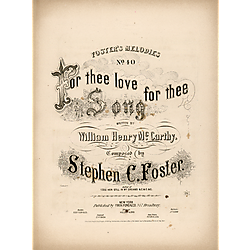 FOSTER'S MELODIES
No. 40
For thee love for thee
Song
WRITTEN BY
William Henry McCarthy.
Composed by
Stephen C. Foster.
NEW YORK
Published by FIRTH, POND & CO. 547 Broadway.